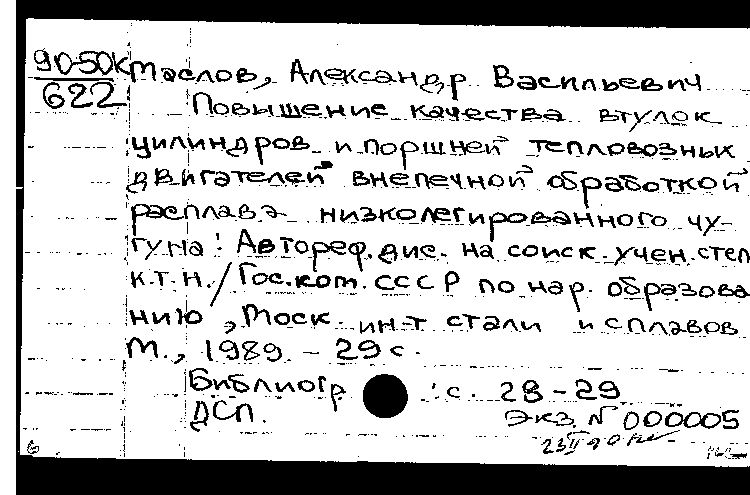 90-50к
622
Маслов, Александр Васильевич
Повышение качества втулок
цилиндров и поршней тепловозных
двигателей внепечной обработкой
расплава низколегированного чу-
гуна: Автореф. дис. на соиск. учен. степ
к.т.н. / Гос. ком. СССР по нар. образова
нию, Моск. ин-т стали и сплавов
М., 1989. - 29 с.
Библиогр : с. 28-29
ДСП.
Экз. N 000005
23 II 90